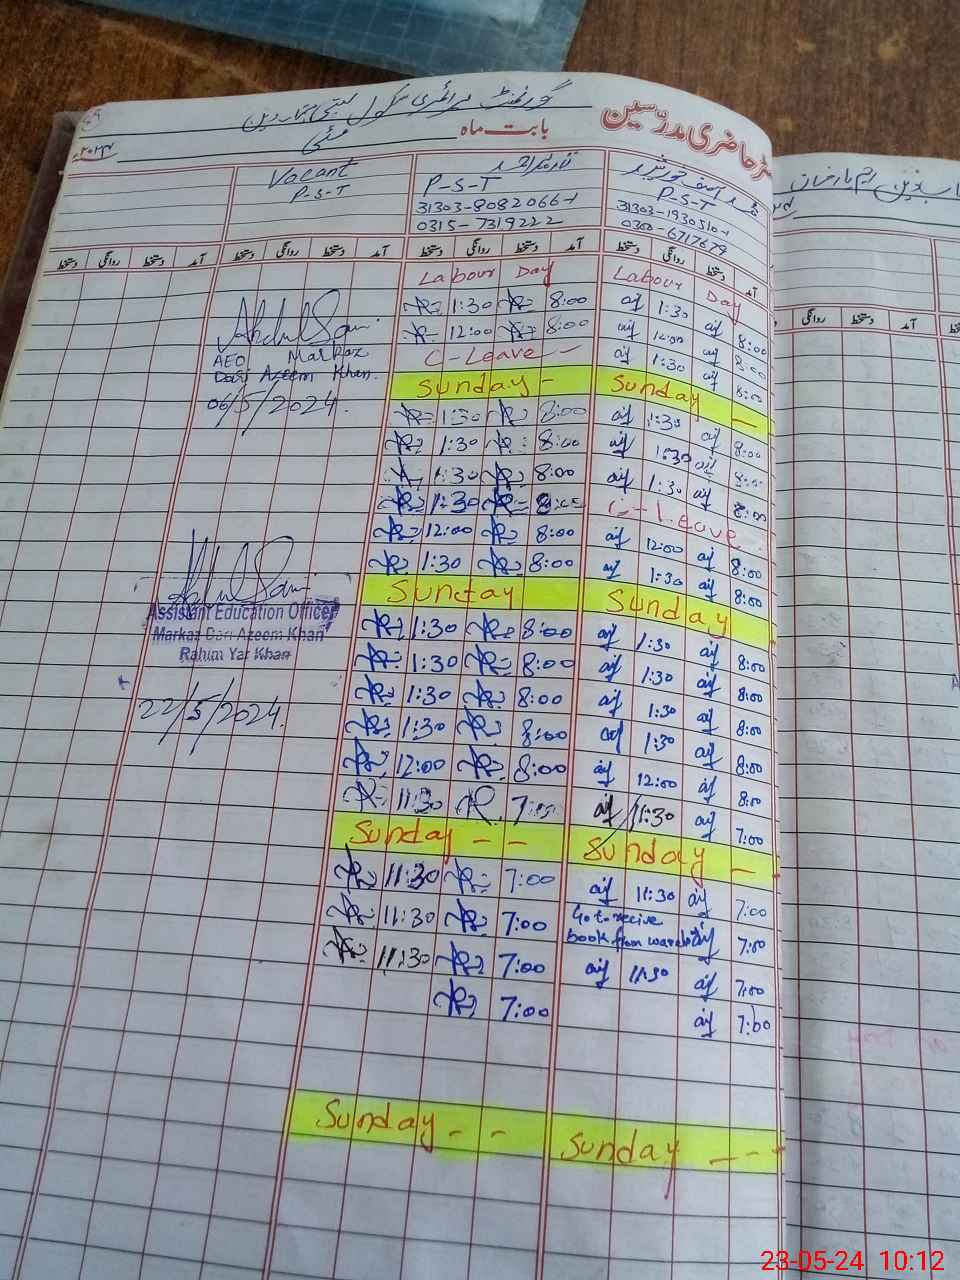 رجسٹر حاضری مدرسین
گورنمنٹ پرائمری سکول بستی
بابت ماہ مئی
Vacant
P-S-T
P-S-T
31303-8082066-1
0315-7319222
P-S-T
31303-1930510-1
0300-6717679
آمد دستخط روانگی دستخط آمد دستخط روانگی دستخط آمد دستخط روانگی دستخط دستخط روانگی دستخط آمد
Labour Day Labour Day
1:30 8:00 1:30 8:00
12:00 8:00 12:00 8:00
C-Leave - 1:30 8:00
Sunday - Sunday -
1:30 8:00 1:30 8:00
1:30 8:00 1:30 8:00
1:30 8:00 1:30 8:00
1:30 8:00 C-Leave
12:00 8:00 12:00 8:00
1:30 8:00 1:30 8:00
Sunday Sunday
1:30 8:00 1:30 8:00
1:30 8:00 1:30 8:00
1:30 8:00 1:30 8:00
1:30 8:00 1:30 8:00
12:00 8:00 12:00 8:00
11:30 7:00 11:30 7:00
Sunday - - Sunday -
11:30 7:00 11:30 7:00
11:30 7:00 Go to recive book from 7:00
11:30 7:00 11:30 7:00
7:00 7:00
Sunday - - Sunday - - -
Abdul Sami
AEO Markaz
Dari Azeem Khan.
06/5/2024.
Abdul Sami
Assistant Education Officer
Markaz Dari Azeem Khan
Rahim Yar Khan
22/5/2024.
رحیم یار خان
دستخط روانگی دستخط آمد
23-05-24 10:12